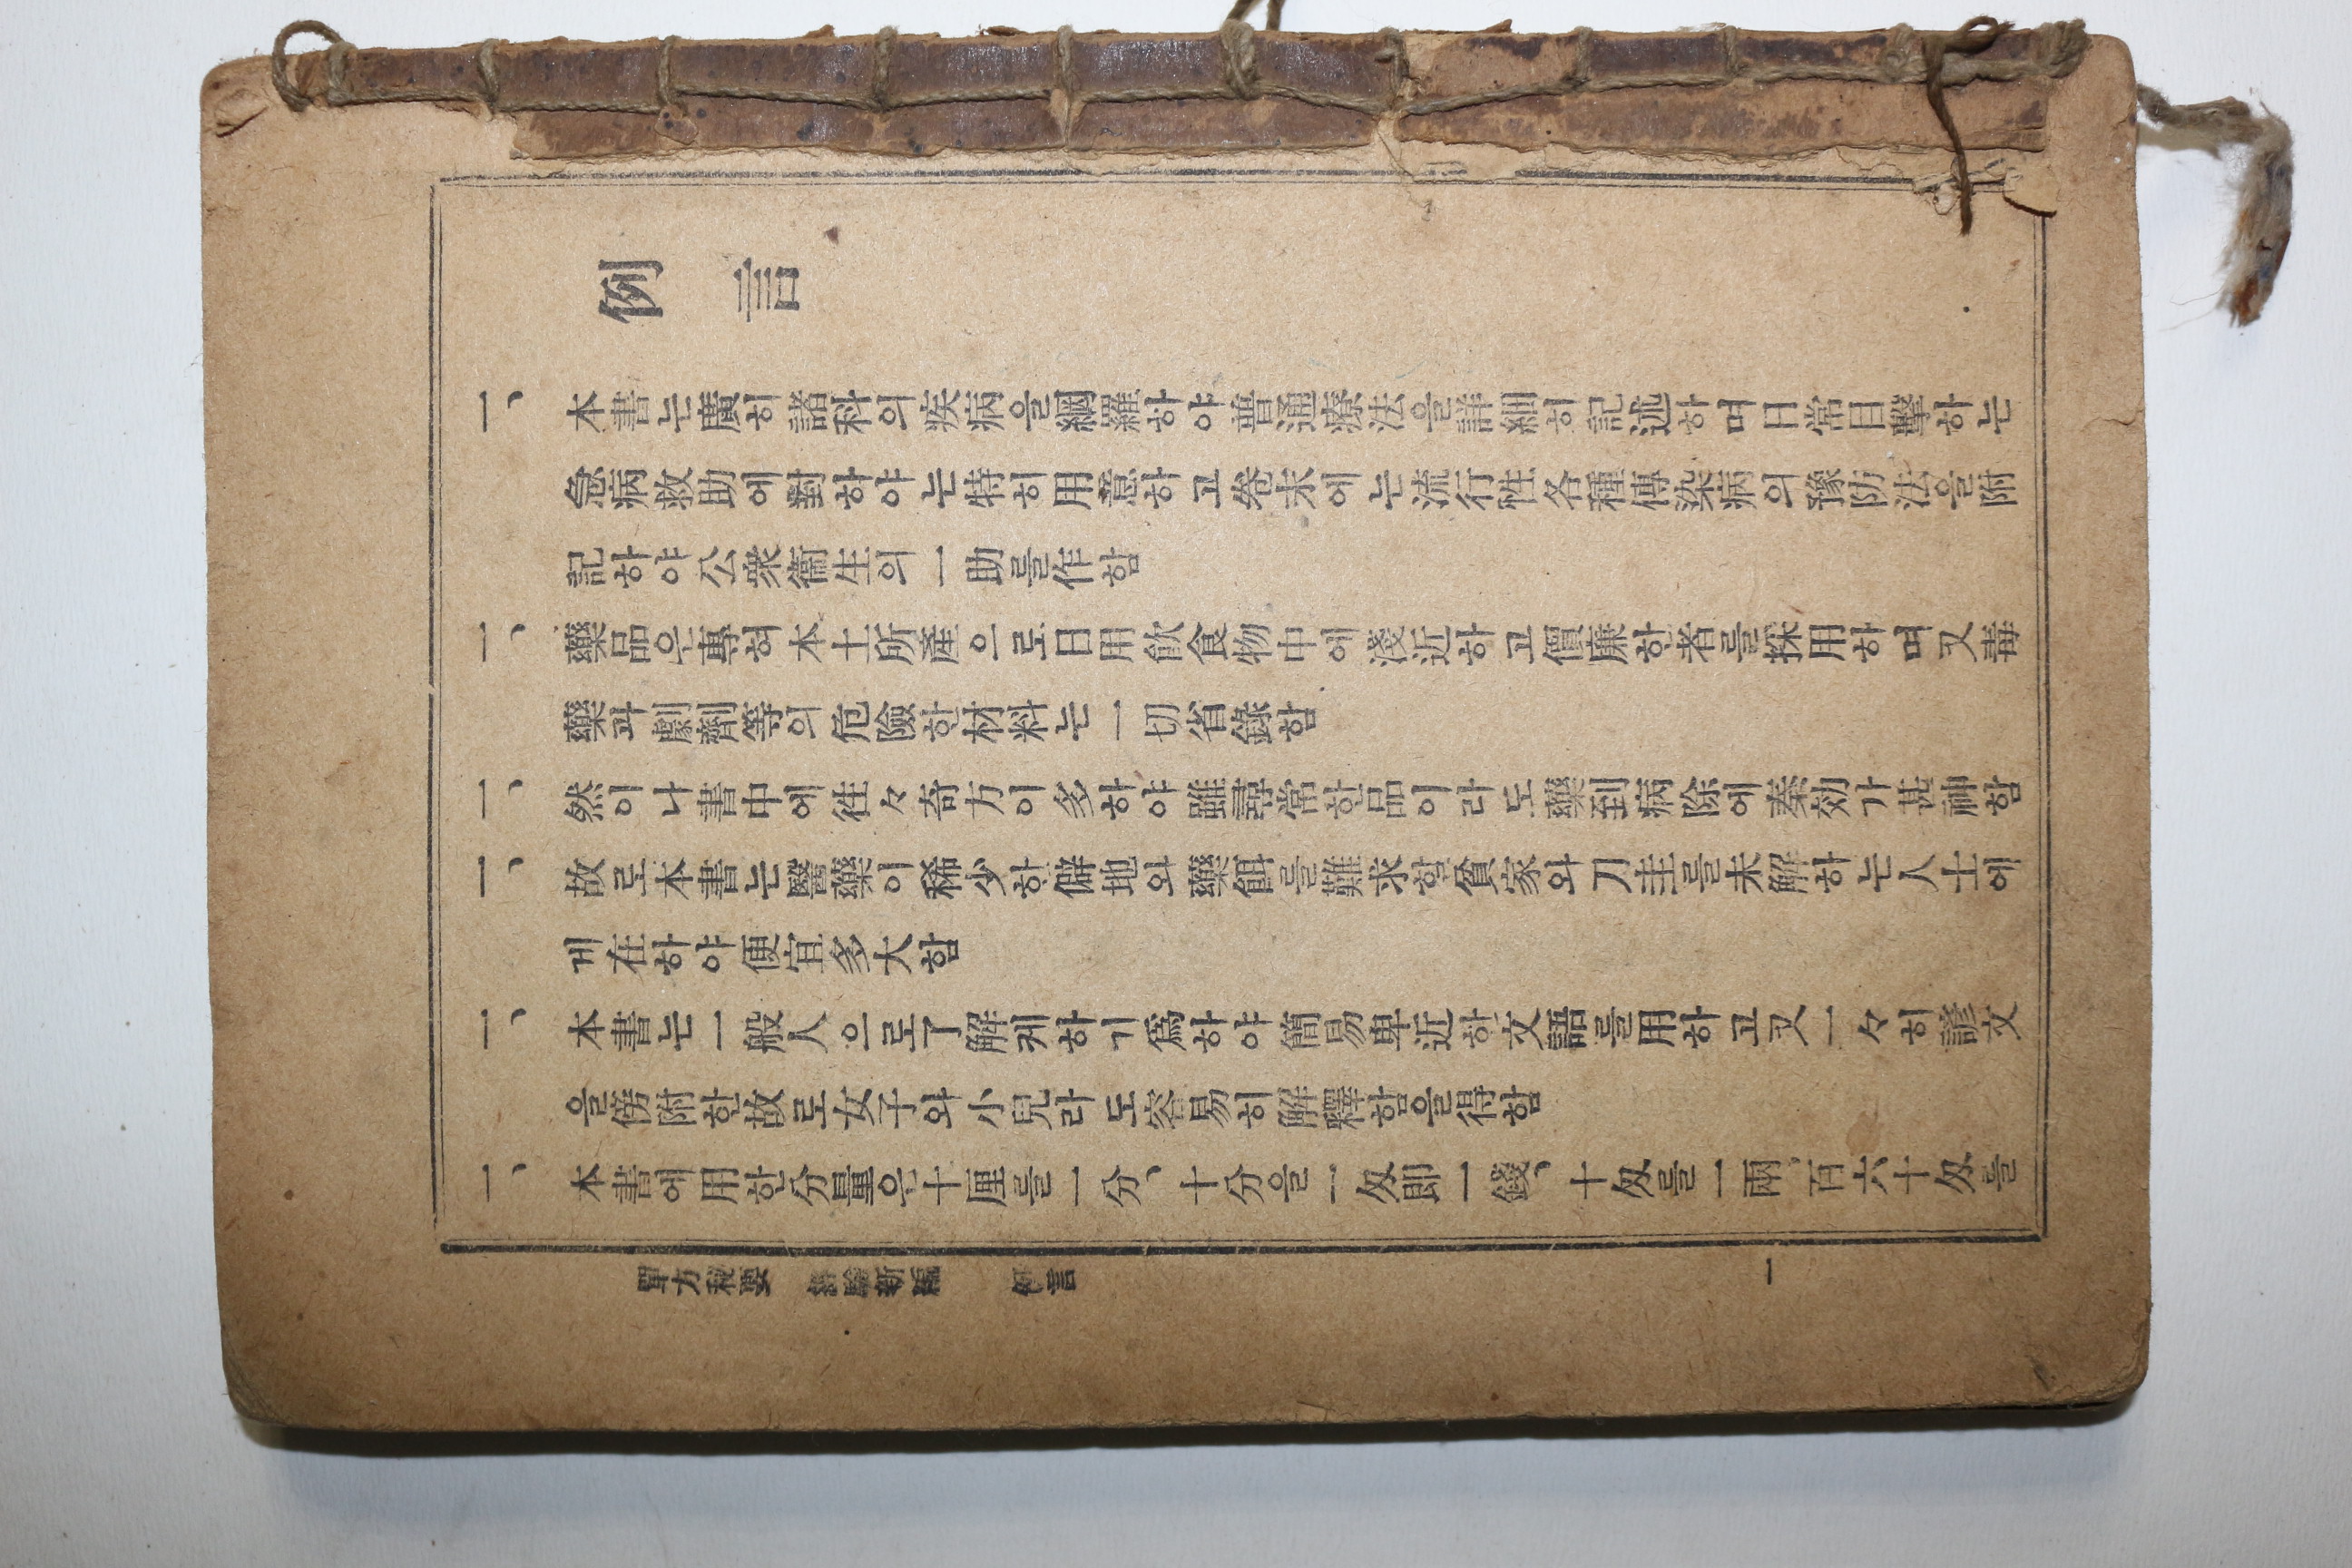 例言
一、本書는廣히諸科의疾病을網羅하야普通療法을詳細히記述하며日常目擊하는
急病救助에對하야는特히用意하고卷末에는流行性各種傳染病의豫防法을附
記하야公衆衞生의一助를作함
一、藥品은專혀本土所產으로日用飮食物中에淺近하고價廉한者를採用하며又毒
藥과劇劑等의危險한材料는一切省錄함
一、然이나書中에徃々奇方이多하야雖尋常한品이라도藥到病除에奏効가甚神함
一、故로本書는醫藥이稀少한僻地와藥餌를難求할貧家와刀圭를未解하는人士에
게在하야便宜多大함
一、本書는一般人으로了解케하기爲하야簡易卑近한文語를用하고又一々히諺文
을傍附한故로女子와小兒라도容易히解釋함을得함
一、本書에用한分量은十厘를一分、十分을一匁即一錢、十匁를一兩、百六十匁를
單方秘要 經驗新編 例言
一